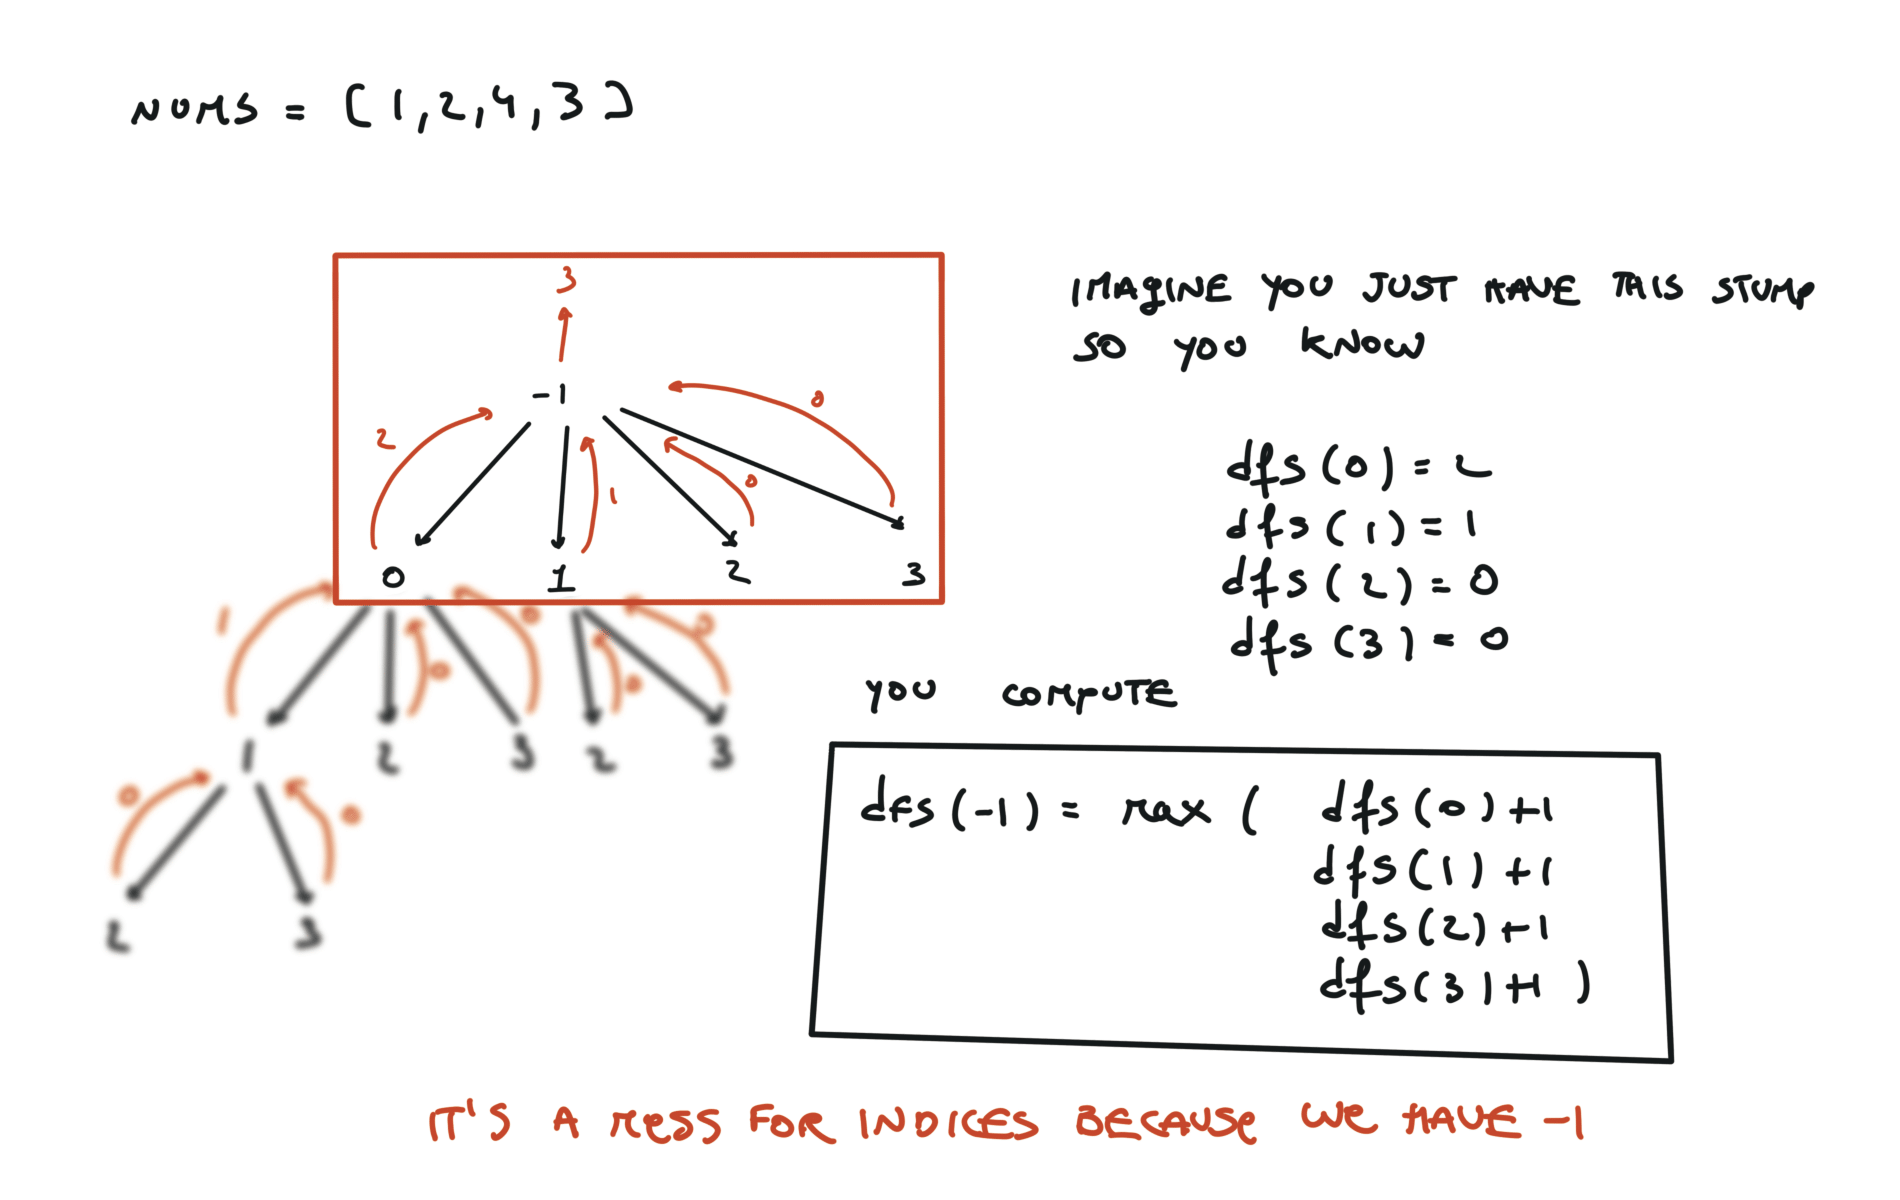 NUMS = [1,2,4,3]
3
-1
2
1
0
0
0 1 2 3
IMAGINE YOU JUST HAVE THIS STUMP
SO YOU KNOW
dfs(0) = 2
dfs(1) = 1
dfs(2) = 0
dfs(3) = 0
1 0 0 0 0
1 2 3 2 3
0 0
2 3
YOU COMPUTE
dfs(-1) = max ( dfs(0)+1
dfs(1)+1
dfs(2)+1
dfs(3)+1 )
IT'S A MESS FOR INDICES BECAUSE WE HAVE -1